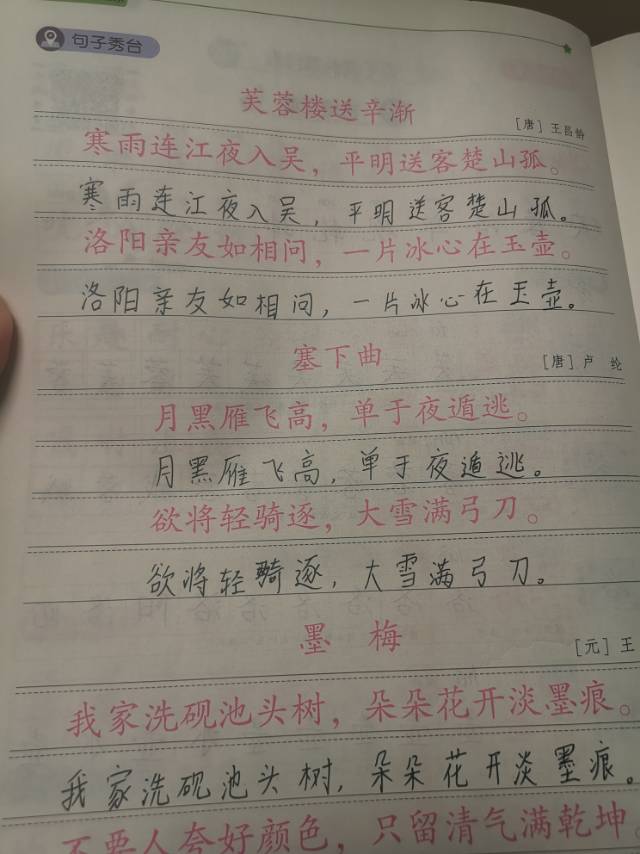 句子秀台
芙蓉楼送辛渐
[唐] 王昌龄
寒雨连江夜入吴，平明送客楚山孤。
寒雨连江夜入吴，平明送客楚山孤。
洛阳亲友如相问，一片冰心在玉壶。
洛阳亲友如相问，一片冰心在玉壶。
塞下曲
[唐] 卢 纶
月黑雁飞高，单于夜遁逃。
月黑雁飞高，单于夜遁逃。
欲将轻骑逐，大雪满弓刀。
欲将轻骑逐，大雪满弓刀。
墨 梅
[元] 王
我家洗砚池头树，朵朵花开淡墨痕。
我家洗砚池头树，朵朵花开淡墨痕。
不要人夸好颜色，只留清气满乾坤。